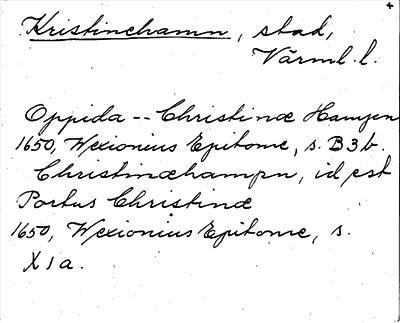 Kristinehamn, stad,
Värml. l.
Oppida -- Christinæ Hamyen
1650, Wexionius Epitome, s. B3b.
Christinæhampn, id est
Portus Christinæ
1650, Wexionius Epitome, s.
X1a.